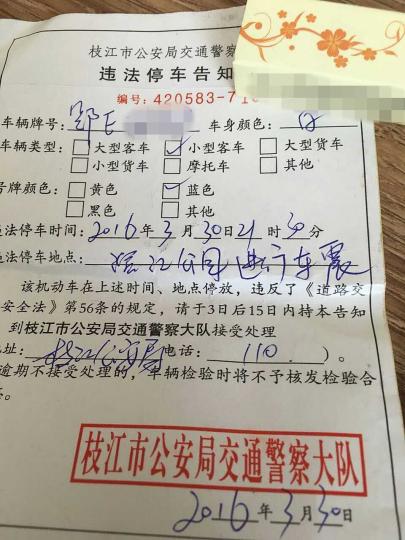 枝江市公安局交通警察
违法停车告知
编号:420583-71
车辆牌号:鄂E 车身颜色:白
车辆类型: 大型客车 小型客车 大型货车
小型货车 摩托车 其他
号牌颜色: 黄色 蓝色
黑色 其他
违法停车时间:2016年3月30日21时30分
违法停车地点:滨江公园进行车震
该机动车在上述时间、地点停放,违反了《道路交
安全法》第56条的规定,请于3日后15日内持本告知
到枝江市公安局交通警察大队接受处理
地址:枝江公安局电话:110)。
逾期不接受处理的,车辆检验时将不予核发检验合
志。
枝江市公安局交通警察大队
2016年3月30